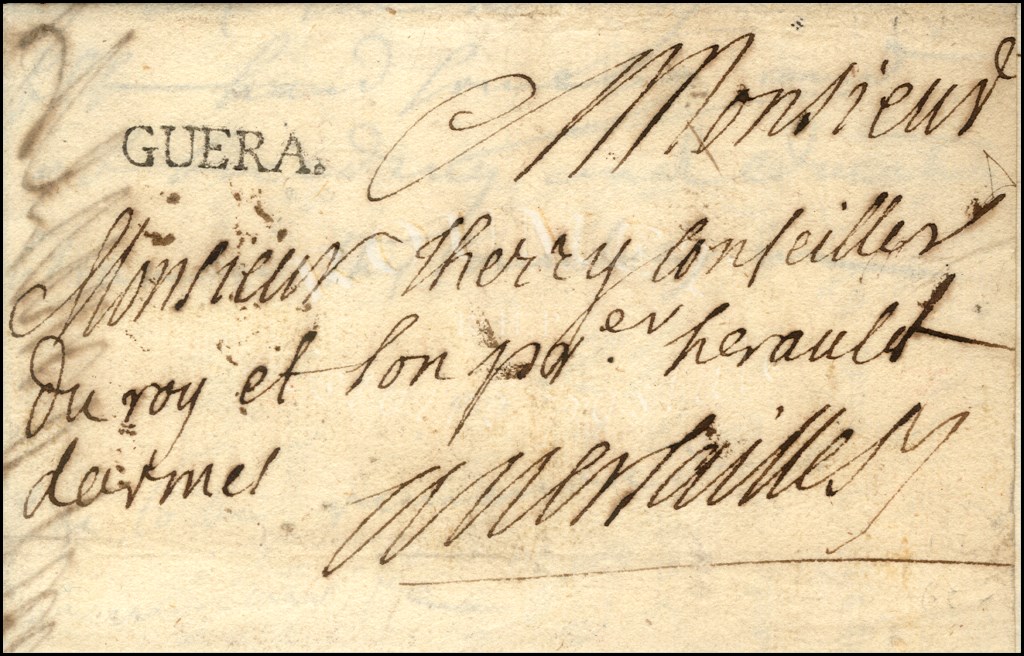 Monsieur
GUERA.
Monsieur therry Conseiller
du roy et son pr.er herault
darmes
a versailles